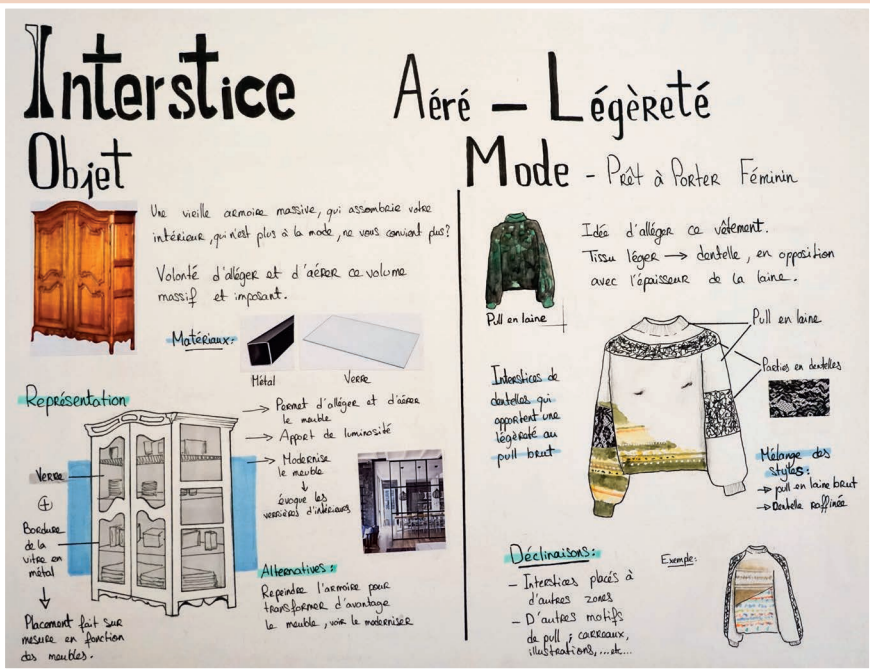 Interstice
Aéré – Légèreté
Objet
Une vieille armoire massive, qui assombrie votre
intérieur, qui n'est plus à la mode, ne vous convient plus?
Volonté d'alléger et d'aérer ce volume
massif et imposant.
Matériaux:
Métal
Verre
Représentation
→ Permet d'alléger et d'aérer
le meuble
→ Apport de luminosité
→ Modernise
le meuble
↓
évoque les
verrières d'intérieurs
Verre
+
Bordure
de la
vitre en
métal
↓
Placement fait sur
mesure en fonction
des meubles.
Alternatives:
Repeindre l'armoire pour
transformer d'avantage
le meuble, voir le moderniser
Mode - Prêt à Porter Féminin
Pull en laine
Idée d'alléger ce vêtement.
Tissu léger → dentelle, en opposition
avec l'épaisseur de la laine.
Pull en laine
Parties en dentelles
Interstices de
dentelles qui
apportent une
légèreté au
pull brut
Mélange des
styles:
→ pull en laine brut
→ Dentelle raffinée
Déclinaisons:
- Interstices placés à
d'autres zones
- D'autres motifs
de pull ; carreaux,
illustrations, ...etc...
Exemple: